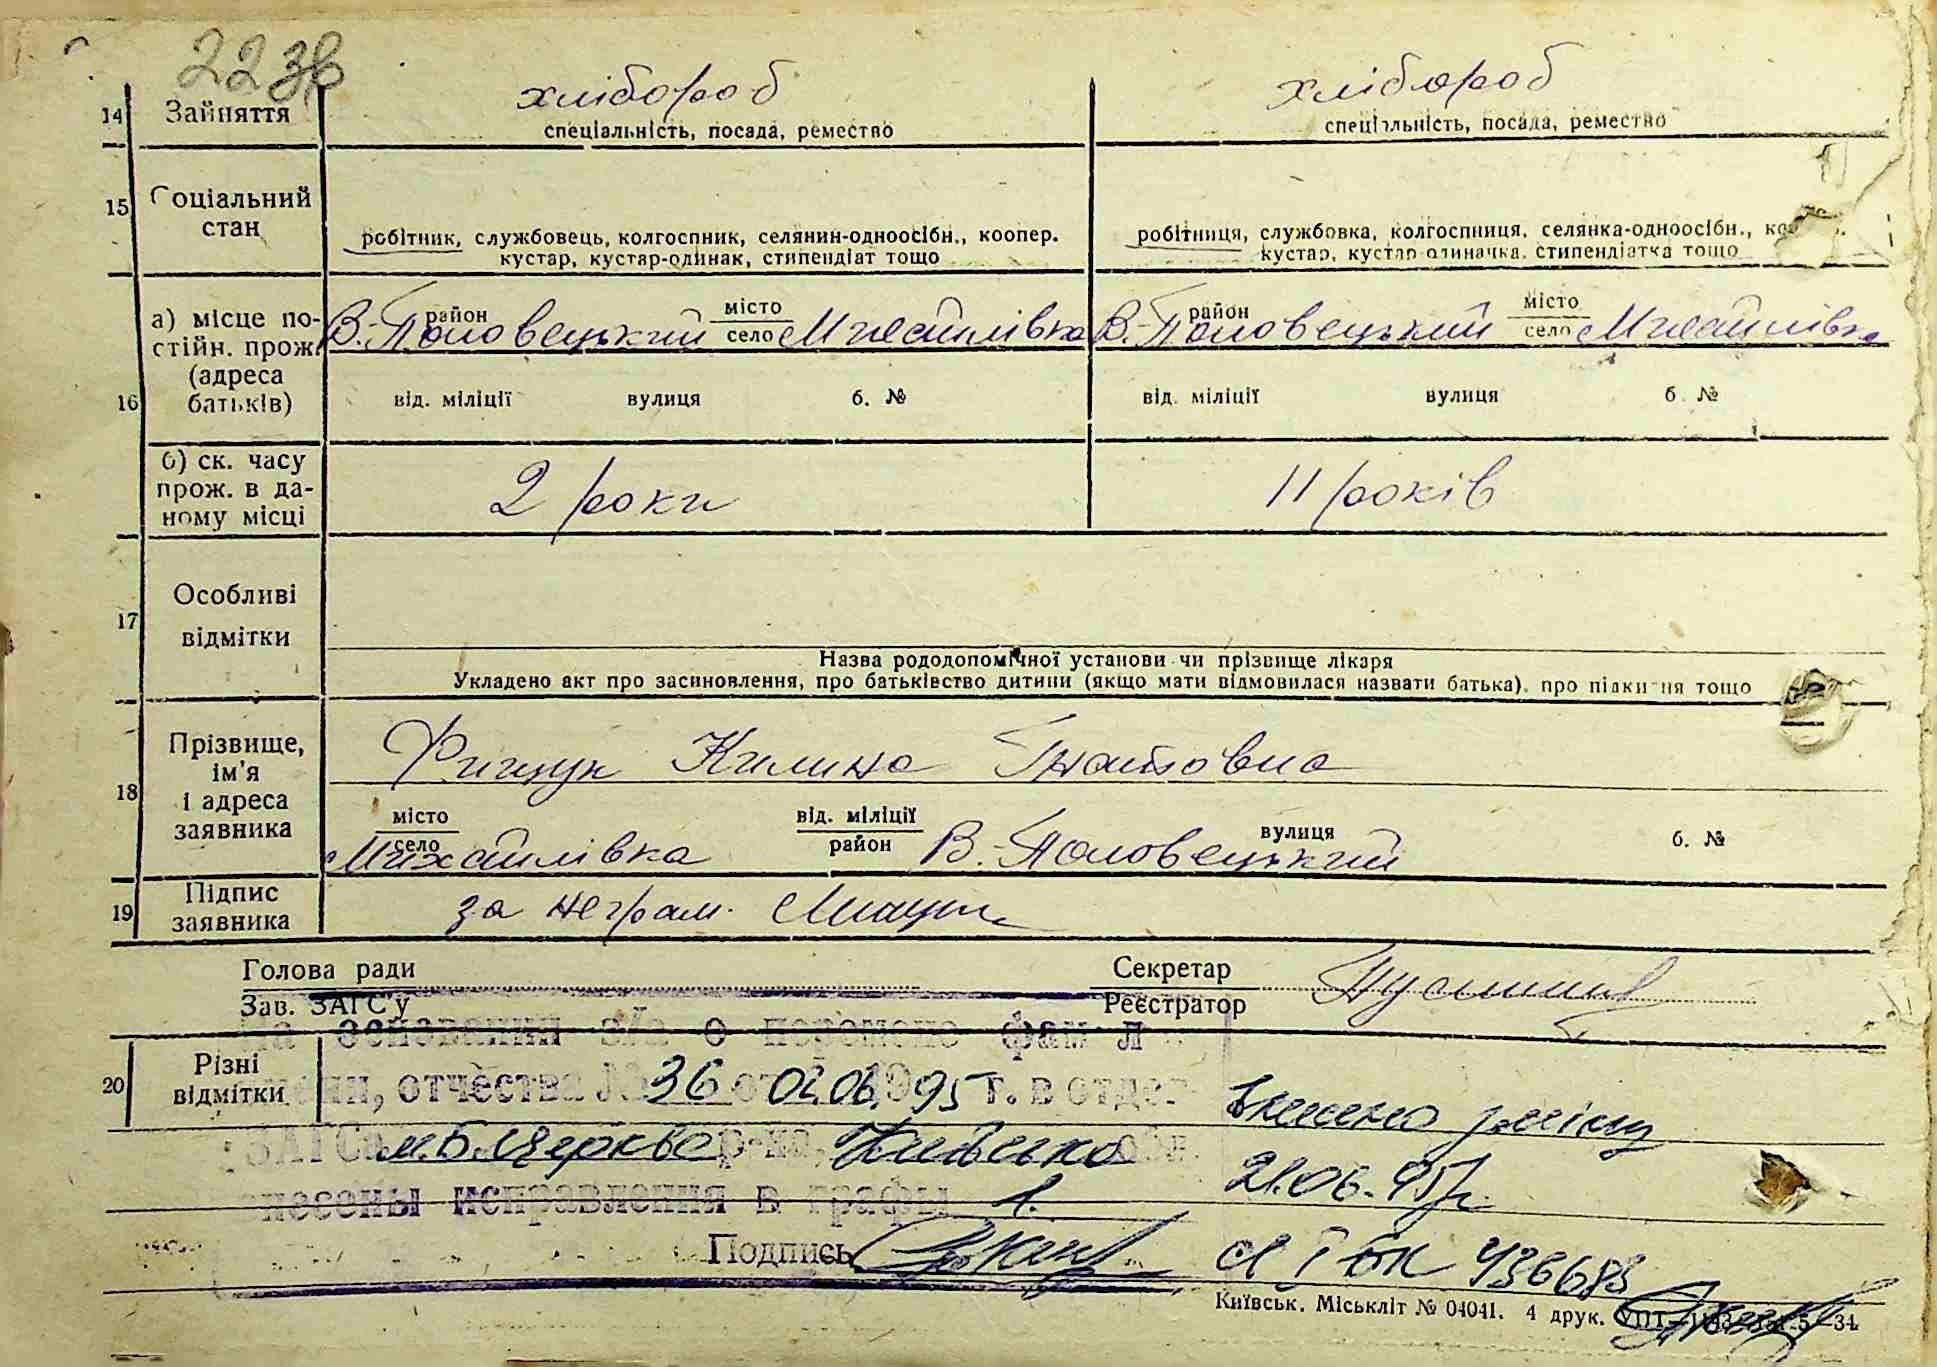 223
хлібороб хлібороб
14 Зайняття спеціальність, посада, ремество спеціальність, посада, ремество
15 Соціальний стан
робітник, службовець, колгоспник, селянин-одноосібн., коопер. робітниця, службовка, колгоспниця, селянка-одноосібн.,
кустар, кустар-одинак, стипендіат тощо кустар, кустар-одиначка, стипендіатка тощо
16 а) місце постійн. прож. (адреса батьків)
район місто район місто
В.-Половецький село Михайлівка В.-Половецький село Михайлівка
від. міліції вулиця б. № від. міліції вулиця б. №
б) ск. часу прож. в даному місці
2 роки 11 років
17 Особливі відмітки
Назва рододопомічної установи чи прізвище лікаря
Укладено акт про засиновлення, про батьківство дитини (якщо мати відмовилася назвати батька), про підки ня тощо
18 Прізвище, ім'я і адреса заявника
Килина Гнатовна
місто від. міліції вулиця
село Михайлівка район В.-Половецький б. №
19 Підпис заявника за неграм.
Голова ради Секретар
Зав. ЗАГС'у Реєстратор
на основании з/а о перемене фам л
20 Різні відмітки
ени, отчества № 36 от 02.06.1995 г. в отдел
внесено зміну
ЗАГСа м.Б.Церква р-на, Київська обл
21.06.95р.
несены исправления в графы 1.
Подпись
І БК 436683
Київськ. Міськліт № 04041. 4 друк. УПТ 5—34